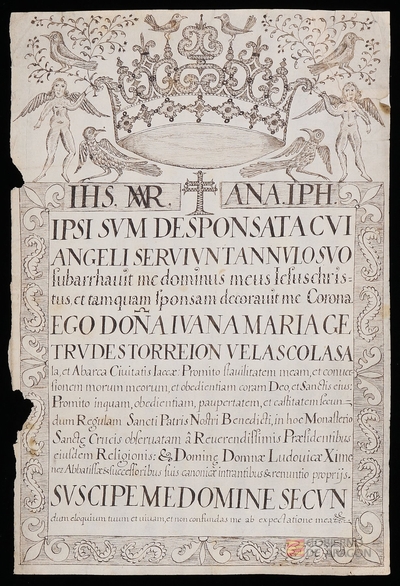 IHS. MAR. ANA. IPH.
IPSI SVM DESPONSATA CVI
ANGELI SERVIVNT ANNVLO SVO
subarrhauit me dominus meus Iesus chris=
tus, et tamquam Sponsam decorauit me Corona.
EGO DOÑA IVANA MARIA GE
TRVDES TORREION VELASCO LASA
la, et Abarca Ciuitatis Iaccæ: Promito stauilitatem meam, et conuer
sionem morum meorum, et obedientiam coram Deo, et Sanctis eius:
Promito inquam, obedientiam, paupertatem, et castitatem secun=
dum Regulam Sancti Patris Nostri Benedicti, in hoc Monasterio
Sanctę Crucis obseruatam à Reuerendissimis Præsidentibus
eiusdem Religionis: & Dominę Domnæ Ludouicæ Xime
nez Abbatissæ & successoribus suis canonicæ intrantibus & renuntio proprijs.
SVSCIPE ME DOMINE SECVN
dum eloquium tuum et uiuam, et non confundas me ab expectatione mea
GOBIERNO
DE ARAGON